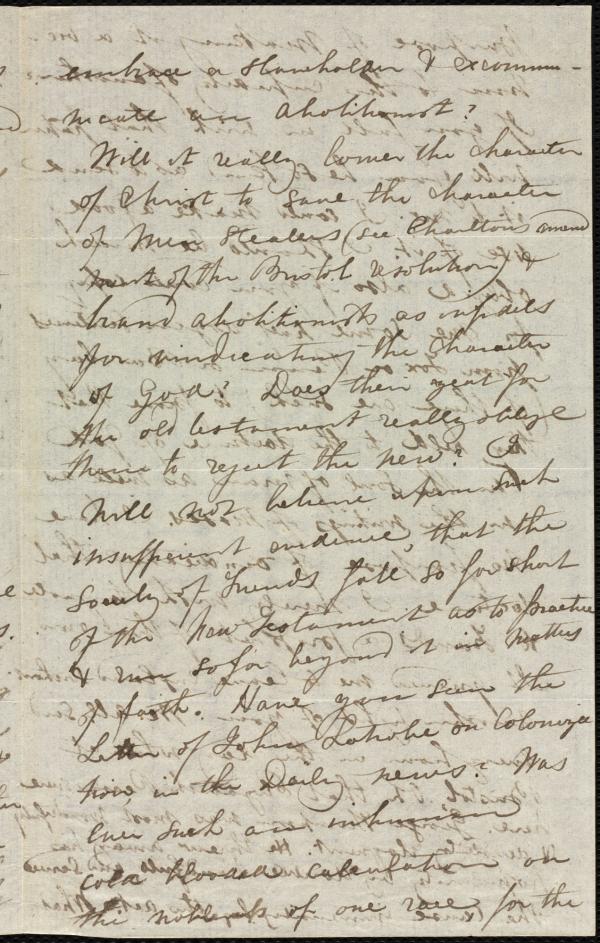 embrace a slaveholder & excommu-
nicate an abolitionist?
Will it really lower the character
of Christ to save the character
of Men Stealers (see Charltons amend
ment of the Bristol resolution) &
brand abolitionists as infidels
for vindicating the character
of God? Does their zeal for
the old testament really oblige
them to reject the new? I
will not believe upon such
insufficient evidence, that the
Society of Friends fall so far short
of the New Testament as to practice
& run so far beyond it in matters
of faith. Have you seen the
Letter of John Latrobe on Coloniza
tion, in the Daily news. Was
ever such an inhuman
cold blooded calculation on
the of one race for the